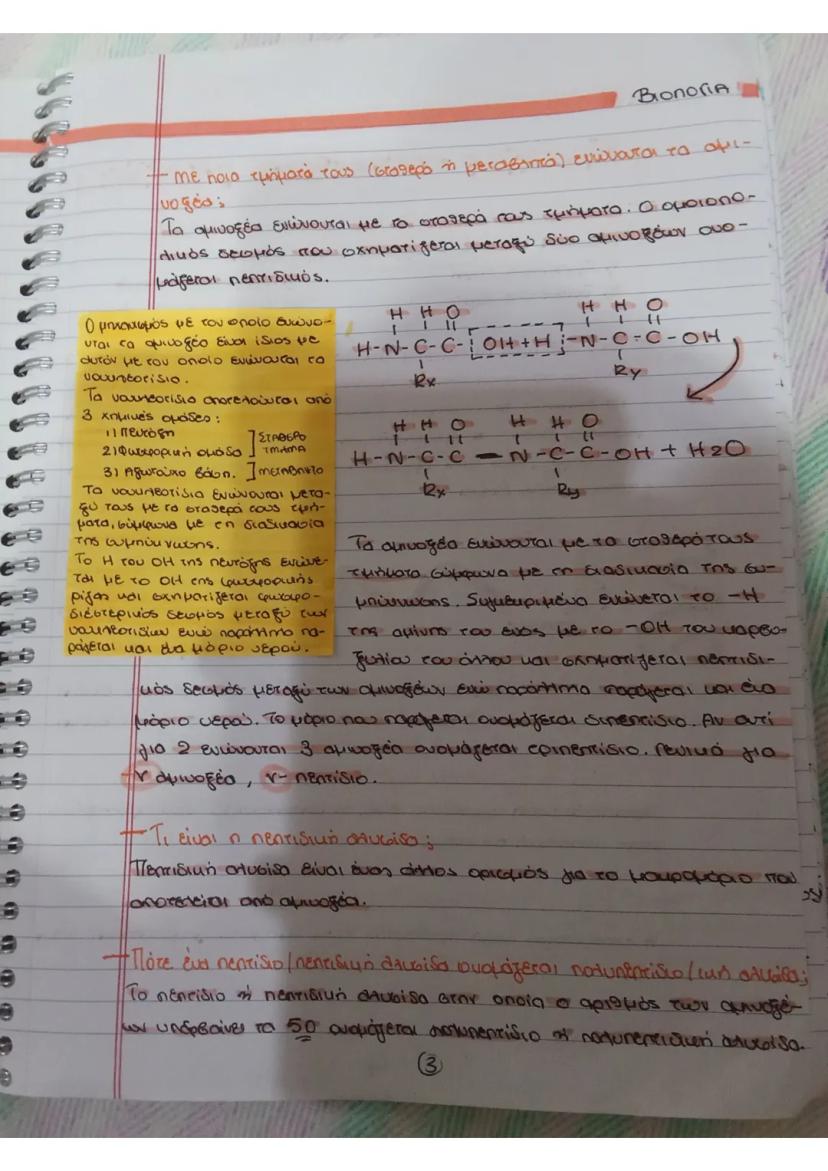 Βιολογία
- Με ποια τμήματά τους (σταθερά ή μεταβλητά) ενώνονται τα αμι-
νοξέα;
Τα αμινοξέα ενώνονται με τα σταθερά τους τμήματα. Ο ομοιοπο-
λικός δεσμός που σχηματίζεται μεταξύ δύο αμινοξέων ονο-
μάζεται πεπτιδικός.
Ο μηχανισμός με τον οποίο ενώνο-
νται τα αμινοξέα είναι ίδιος με
αυτόν με τον οποίο ενώνονται τα
νουκλεοτίδια.
Τα νουκλεοτίδια αποτελούνται από
3 χημικές ομάδες:
1) Πεντόζη
2) Φωσφορική ομάδα ] ΣΤΑΘΕΡΟ ΤΜΗΜΑ
3) Αζωτούχο βάση. ] ΜΕΤΑΒΛΗΤΟ
Τα νουκλεοτίδια ενώνονται μετα-
ξύ τους με τα σταθερά τους τμή-
ματα, σύμφωνα με τη διαδικασία
της συμπύκνωσης.
Το Η του ΟΗ της πεντόζης ενώνε-
ται με το ΟΗ της φωσφορικής
ρίζας και σχηματίζεται φωσφο-
διεστερικός δεσμός μεταξύ των
νουκλεοτιδίων ενώ παράλληλα πα-
ράγεται και ένα μόριο νερού.
H H O H H O
H-N-C-C- OH + H -N-C-C-OH
Rx Ry
H H O H H O
H-N-C-C-N-C-C-OH + H2O
Rx Ry
Τα αμινοξέα ενώνονται με τα σταθερά τους
τμήματα σύμφωνα με τη διαδικασία της συ-
μπύκνωσης. Συγκεκριμένα ενώνεται το -Η
της αμίνης του ενός με το -ΟΗ του καρβο-
ξυλίου του άλλου και σχηματίζεται πεπτιδι-
κός δεσμός μεταξύ των αμινοξέων ενώ παράλληλα παράγεται και ένα
μόριο νερού. Το μόριο που παράγεται ονομάζεται διπεπτίδιο. Αν αντί
για 2 ενώνονται 3 αμινοξέα ονομάζεται τριπεπτίδιο. Γενικά για
ν αμινοξέα, ν- πεπτίδιο.
- Τι είναι η πεπτιδική αλυσίδα;
Πεπτιδική αλυσίδα είναι ένας άλλος ορισμός για το μακρομόριο που
αποτελείται από αμινοξέα.
- Πότε ένα πεπτίδιο/πεπτιδική αλυσίδα ονομάζεται πολυπεπτίδιο/ική αλυσίδα;
Το πεπτίδιο ή πεπτιδική αλυσίδα στην οποία ο αριθμός των αμινοξέ-
ων υπερβαίνει τα 50 ονομάζεται πολυπεπτίδιο ή πολυπεπτιδική αλυσίδα.
3